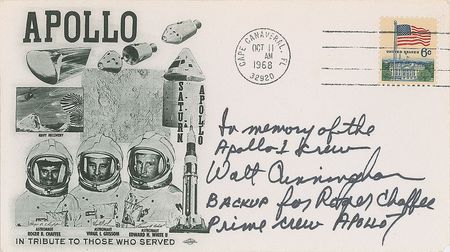 APOLLO
CAPE CANAVERAL, FL
OCT 11
AM
1968
32920
UNITED STATES 6c
NAVY RECOVERY
SATURN
APOLLO
In memory of the
Apollo 1 Crew
Walt Cunningham
BACKUP for Roger Chaffee
Prime crew Apollo 7
ASTRONAUT
ROGER B. CHAFFEE
ASTRONAUT
VIRGIL I. GRISSOM
ASTRONAUT
EDWARD H. WHITE II
IN TRIBUTE TO THOSE WHO SERVED